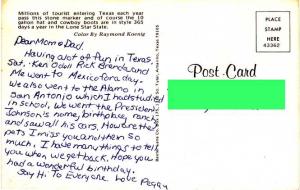 Millions of tourist entering Texas each year
pass this stone marker and of course the 10
gallon hat and cowboy boots are in style 365
days a year in the Lone Star State.
Color By Raymond Koenig
Dear Mom & Dad,
Having a lot of fun in Texas,
Sat. Ken Odell Rick Brenda and
Me went to Mexico for a day.
We also went to the Alamo in
San Antonio which I had studied
in school, We went the President
Johnson's home, birthplace, ranch
and saw all his cars. How are the
pets I miss you and them so
much, I have many things to tell
you when we get back, Hope you
had a wonderful birthday.
Say Hi To Everyone Love Peggy
Post-Card
PLACE
STAMP
HERE
43362